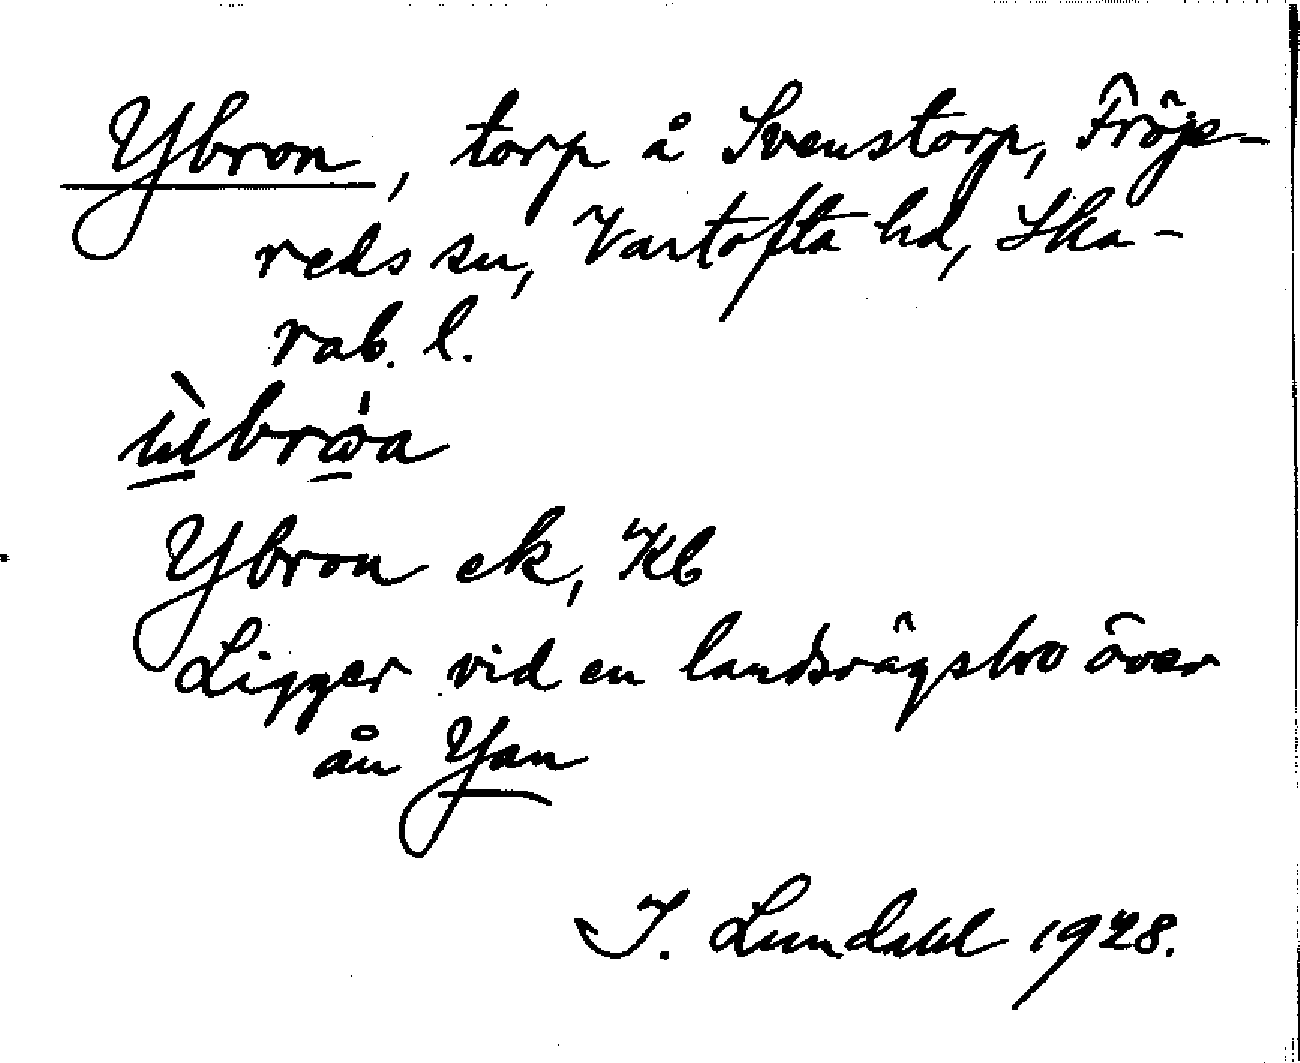 Ybron, torp å Svenstorp, Fröje-
reds sn, Vartofta hd, Ska-
rab. l.
Ybron ek, Kb
Ligger vid en landsvägsbro över
ån Yan
I. Lundahl 1928.